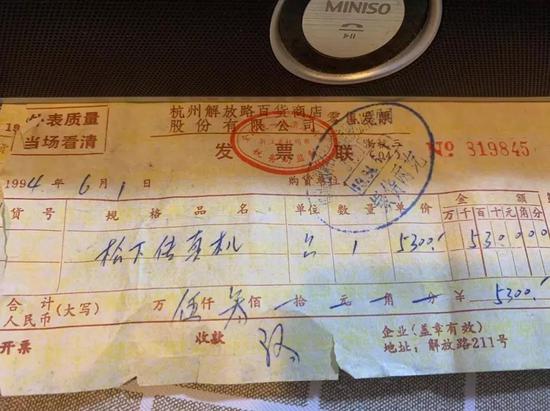 MINISO
表质量
当场看清
杭州解放路百货商店
股份有限公司
发票联
№ 319845
1994年6月1日
购货单位
货号 规格品名 单位 数量 单价 金额
万千百十元角分
松下传真机 1 5300 530000
合计
人民币 (大写) 万 伍仟 叁佰 十 元 角 分 ¥ 5300
开票 收款
企业(盖章有效)
地址:解放路211号